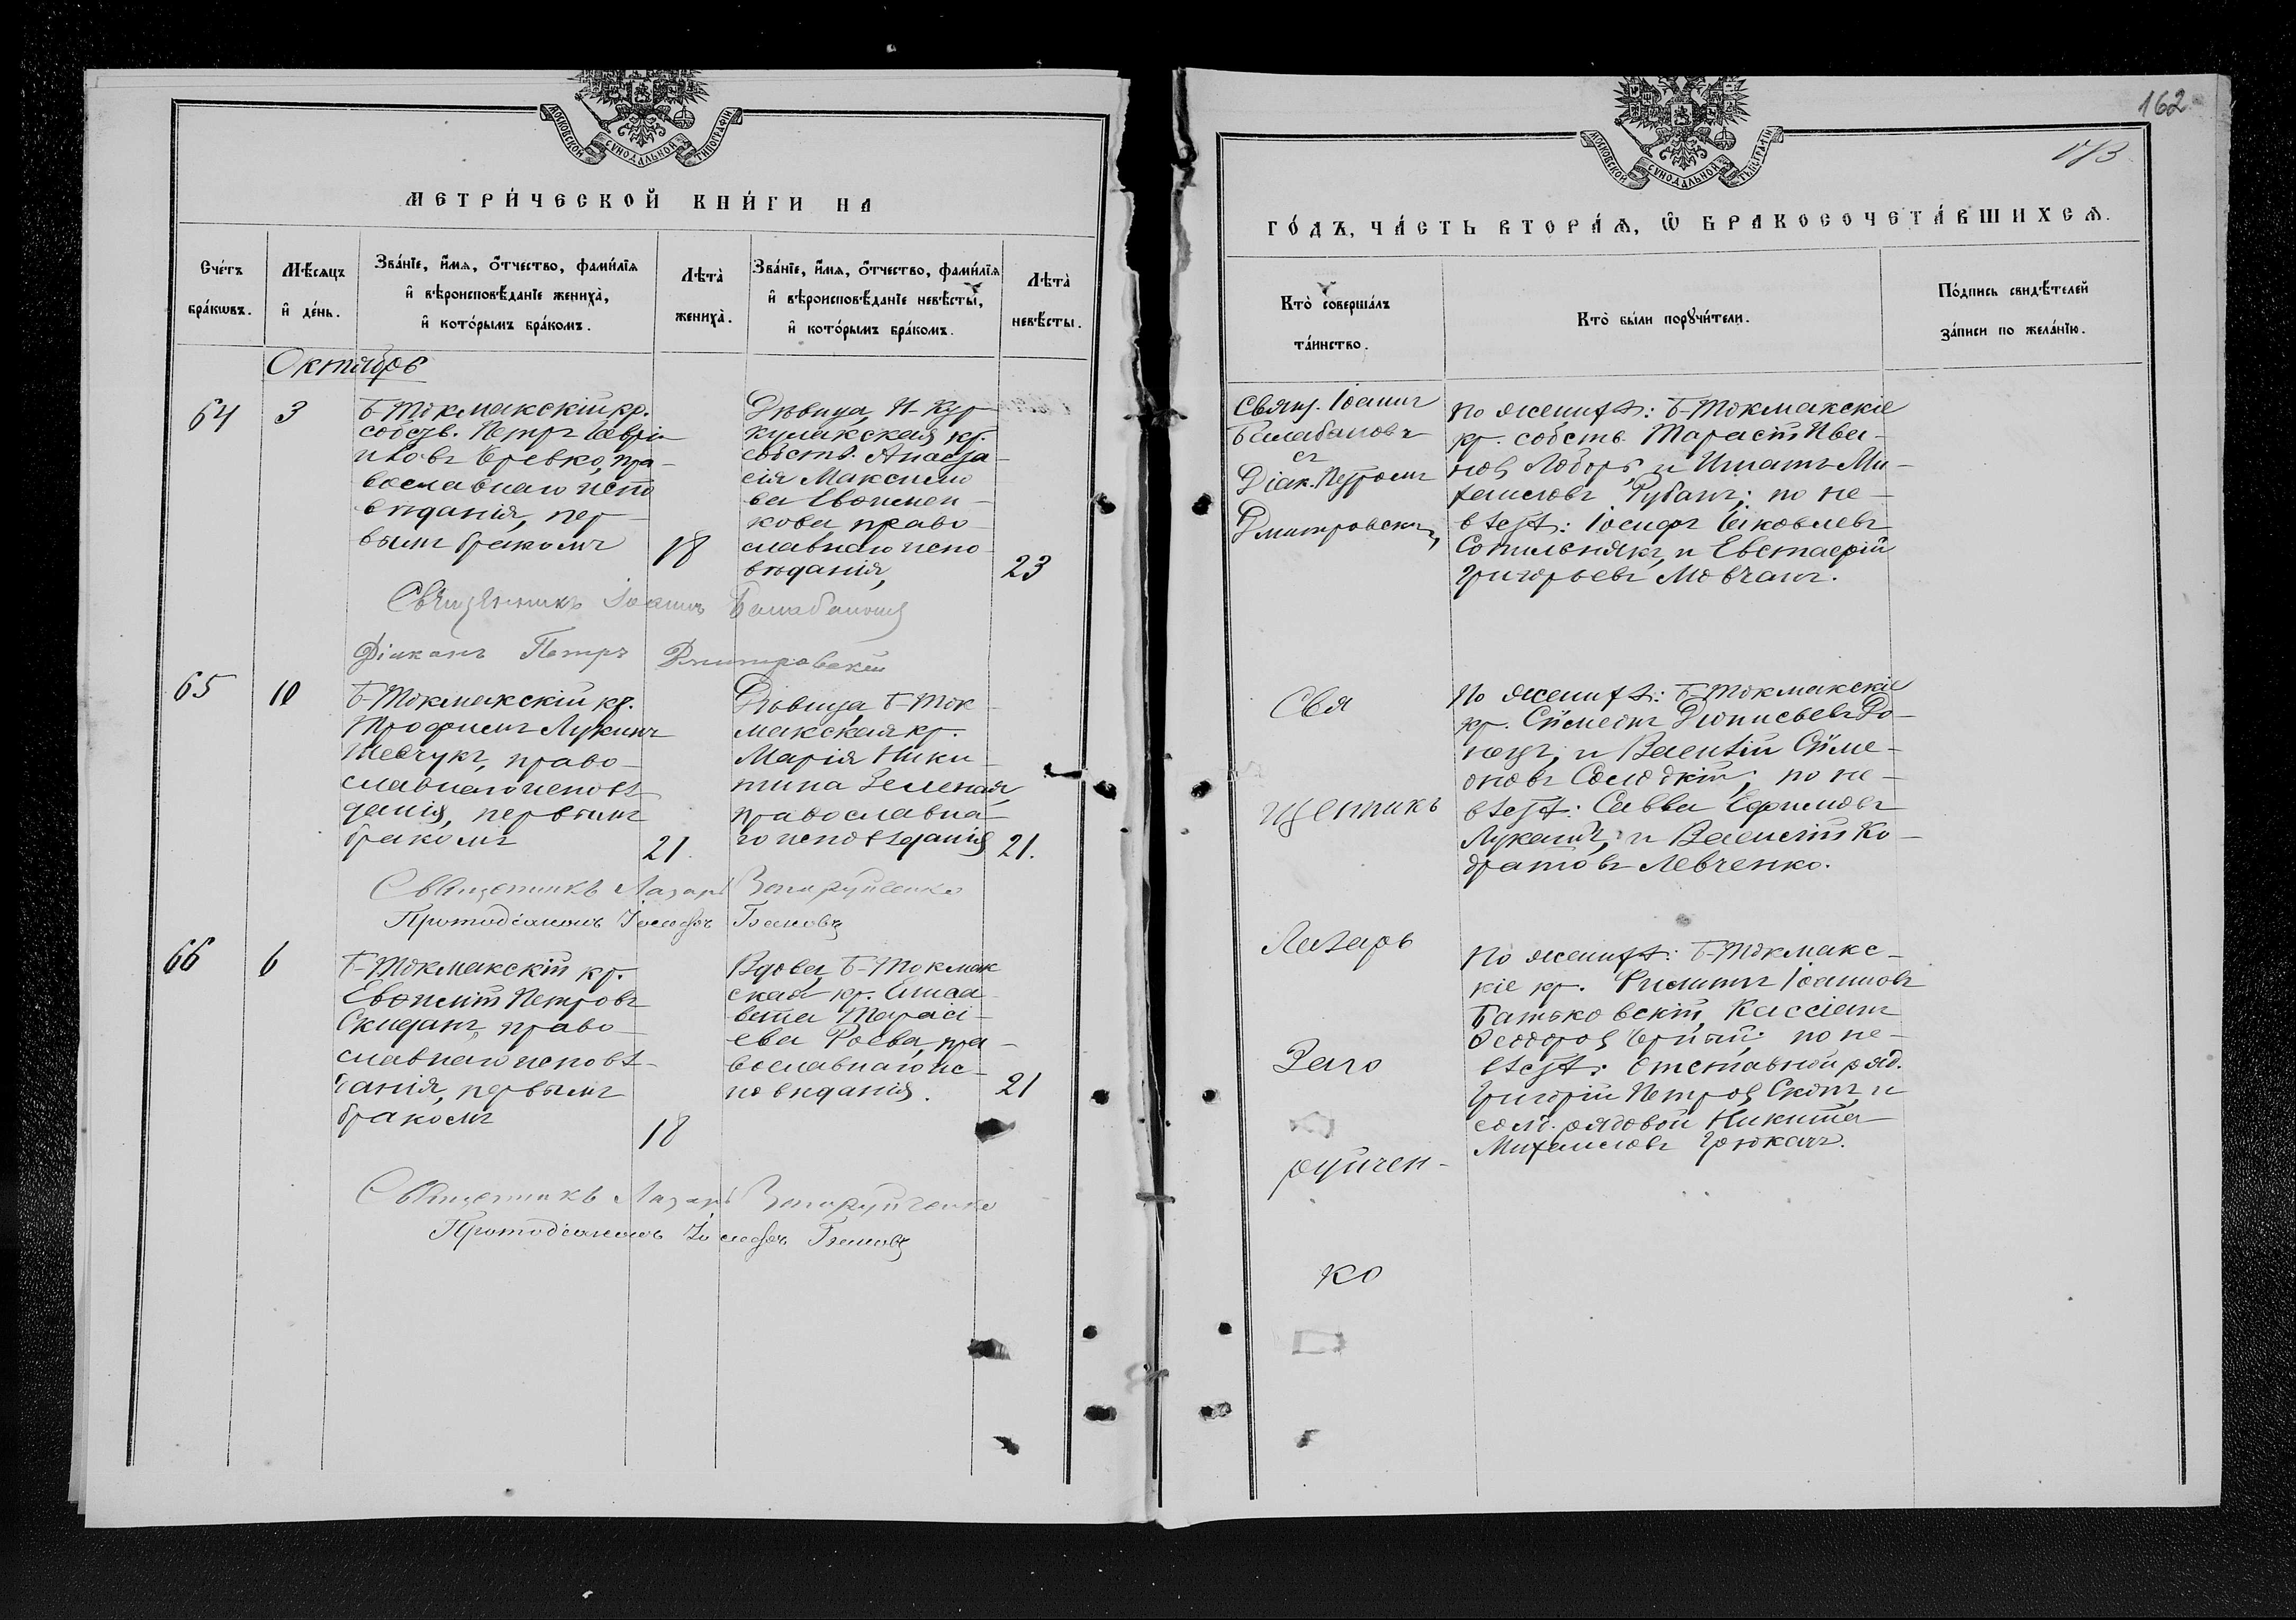 МОСКОВСКОЙ СУНОДАЛЬНОЙ ТИПОГРАФІИ
МЕТРИ́ЧЕСКОЙ КНИ́ГИ НА
Сче́тъ бра́кѡвъ.
Мѣ́сяцъ и҆ де́нь.
Зва́нїе, и҆́мѧ, ѻ҆́тчество, фами́лїѧ и҆ вѣроисповѣ́данїе жениха̀, и҆ кото́рымъ бра́комъ.
Лѣта̀ жениха̀.
Зва́нїе, и҆́мѧ, ѻ҆́тчество, фами́лїѧ и҆ вѣроисповѣ́данїе невѣ́сты, и҆ кото́рымъ бра́комъ.
Лѣта̀ невѣ́сты.
Октябрь
64
3
Б-Токмакскій кр.
собств. Петръ Гаврі-
иловъ Черевко, пра-
вославнаго испо
вѣданія, пер-
вымъ бракомъ
18
Дѣвица, Н-Кур-
кулакская кр.
собств. Анаста-
сія Максимо
ва Евфимен-
кова, право-
славнаго испо-
вѣданія,
23
Священникъ Іоаннъ Балабановъ
Діаконъ Петръ Дмитровскій
65
10
Б-Токмакскій кр.
Трофимъ Лукинъ
Шевчукъ, право-
славнаго исповѣ
данія, первымъ
бракомъ
21.
Дѣвица, Б-Ток-
макская кр.
Марія Ники-
тина Зеленая,
православна-
го исповѣданія
21.
Священникъ Лазарь Запаруйченко
Протодіаконъ Іосифъ
66
6
Б-Токмакскій кр.
Евфимій Петровъ
Скиданъ, право-
славнаго исповѣ-
данія, первымъ
бракомъ
18
Вдова, Б-Токмак
ская кр. Елиса-
вета Тарасі-
ева Роева, пра-
вославнаго ис-
повѣданія.
21
Священникъ Лазарь Запаруйченко
Протодіаконъ Іосифъ
162
173
МОСКОВСКОЙ СУНОДАЛЬНОЙ ТИПОГРАФІИ
ГО́ДЪ, ЧА́СТЬ ВТОРА́Ѧ, Ѽ БРАКОСОЧЕТА́ВШИХСѦ.
Кто̀ соверша́лъ та́инство.
Кто̀ бы́ли порꙋчи́тели.
По́дпись свидѣ́телей за́писи по жела́нїю.
Свящ. Іоаннъ
Балабановъ
съ
Діак. Петромъ
Дмитровскимъ,
По женихѣ: Б-Токмакскіе
кр. собств. Тарасій Ива-
новъ Лободъ, и Игнатъ Ми-
хаиловъ Рубанъ; по не-
вѣстѣ: Іосифъ Яковлевъ
Сопильнякъ, и Евстафій
Григорьевъ Мовчанъ.
Свя
щенникъ
Лазарь
Запо
руйчен-
ко
По женихѣ: Б-Токмакскіе
кр. Сѵмеонъ Діонисьевъ До-
нецъ, и Василій Сѵме-
оновъ Солодкій; по не-
вѣстѣ: Савва Ефимовъ
Луканъ, и Василій Ко-
дратовъ Левченко.
По женихѣ: Б-Токмакс-
кіе кр. Филиппъ Іоанновъ
Батьковскій, Кассіанъ
Ѳеодоровъ Чорный; по не-
вѣстѣ: отставной ряд.
Григорій Петровъ Скопъ, и
рядовой Никита
Михаиловъ Грюкачъ.